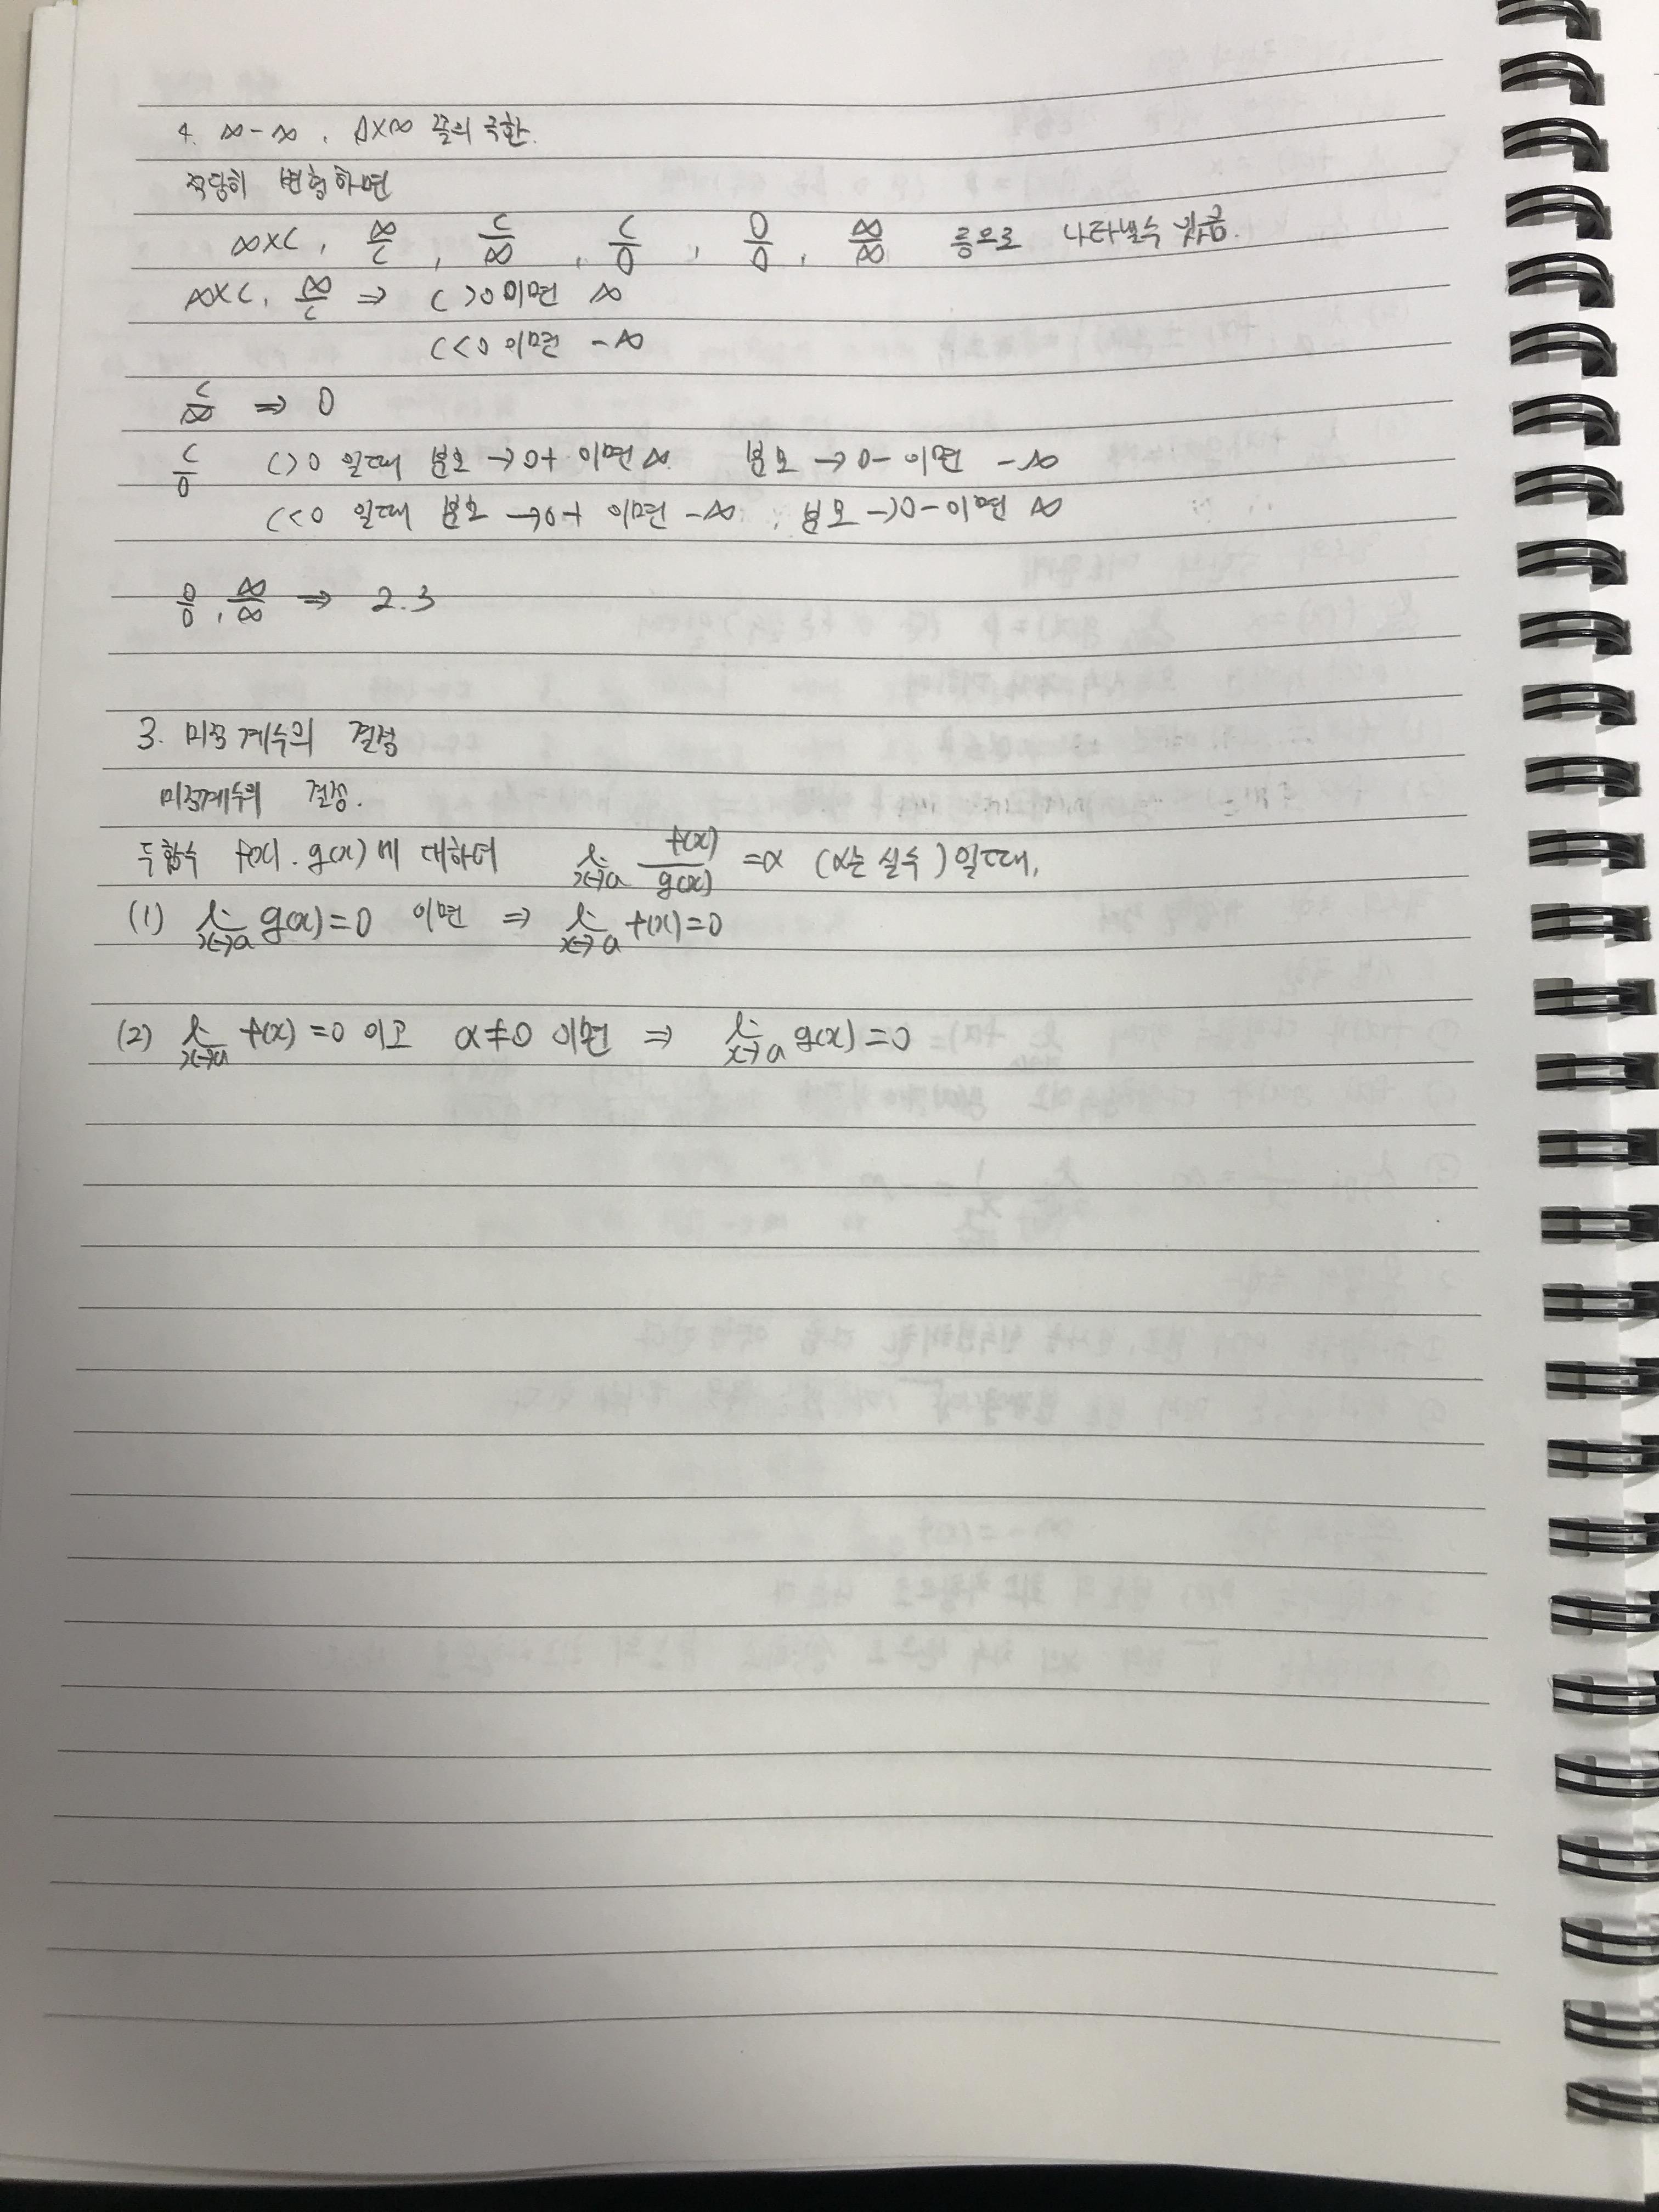 4. ∞-∞, 0×∞ 꼴의 극한.
적당히 변형하면
∞×C, ∞/C, C/∞, C/0, 0/0, ∞/∞ 등으로 나타낼수 있음.
∞×C, ∞/C ⇒ C>0이면 ∞
C<0 이면 -∞
C/∞ ⇒ 0
C/0 C>0 일때 분모 →0+ 이면 ∞ 분모 →0- 이면 -∞
C<0 일때 분모 →0+ 이면 -∞, 분모 →0- 이면 ∞
0/0, ∞/∞ ⇒ 2.3
3. 미정계수의 결정
미정계수의 결정.
두함수 f(x), g(x)에 대하여 lim x→a f(x)/g(x) =α (α는 실수) 일때,
(1) lim x→a g(x)=0 이면 ⇒ lim x→a f(x)=0
(2) lim x→a f(x)=0 이고 α≠0 이면 ⇒ lim x→a g(x)=0